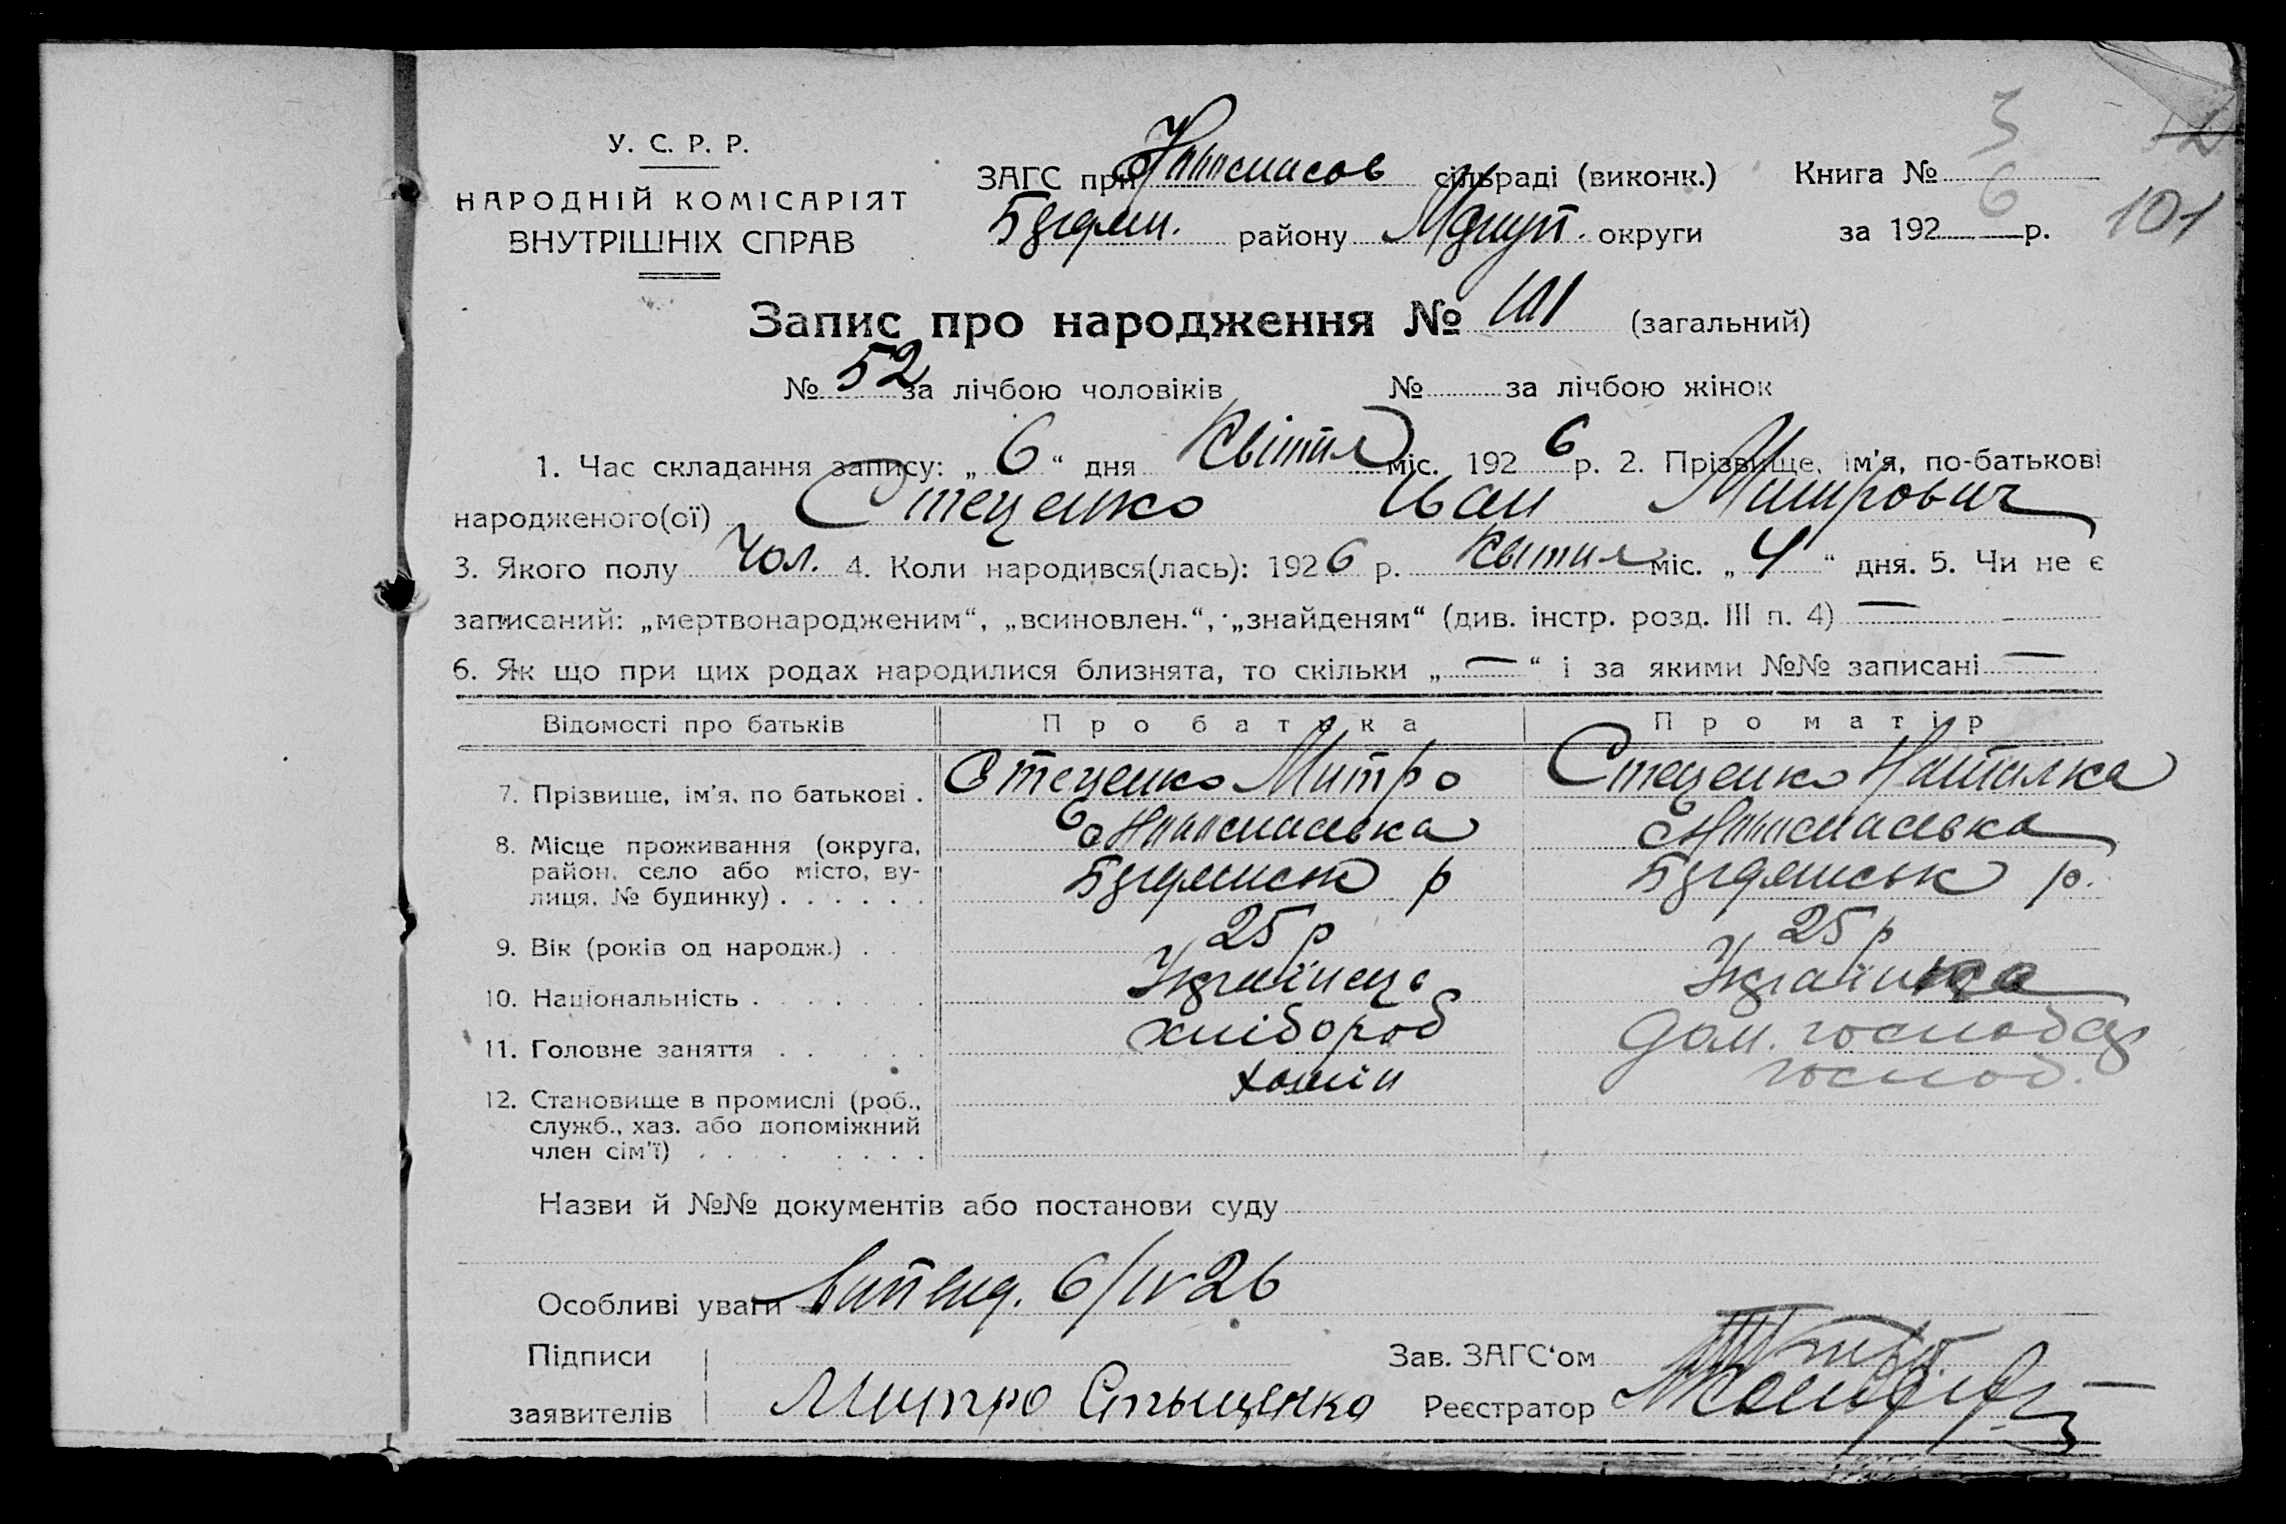 У. С. Р. Р.
НАРОДНІЙ КОМІСАРІЯТ
ВНУТРІШНІХ СПРАВ
ЗАГС при сільраді (виконк.)
району округи
Книга № 3
за 192 6 р.
101
Запис про народження № 101 (загальний)
№ 52 за лічбою чоловіків № за лічбою жінок
1. Час складання запису: „ 6 “ дня Квітня міс. 192 6 р. 2. Прізвище, ім'я, по-батькові
народженого(ої) Стеценко Іван Митрович
3. Якого полу Чол. 4. Коли народився(лась): 192 6 р. Квітня міс. „ 4 “ дня. 5. Чи не є
записаний: „мертвонародженим“, „всиновлен.“, „знайденям“ (див. інстр. розд. III п. 4) —
6. Як що при цих родах народилися близнята, то скільки „ — “ і за якими №№ записані —
Відомості про батьків Про батька Про матір
7. Прізвище, ім'я, по батькові . Стеценко Митро Стеценко Наталка
8. Місце проживання (округа,
район, село або місто, ву-
лиця, № будинку) . . . . . . р р.
9. Вік (років од народж.) . . 25 р 25 р
10. Національність . . . . . . Українець Українка
11. Головне заняття . . . . . хлібороб Дом. господар
12. Становище в промислі (роб.,
служб., хаз. або допоміжний
член сім'ї) . . . . . . . . хазяїн господ.
Назви й №№ документів або постанови суду
Особливі уваги 6/IV 26
Підписи
заявителів Митро Стыценко
Зав. ЗАГС'ом
Реєстратор